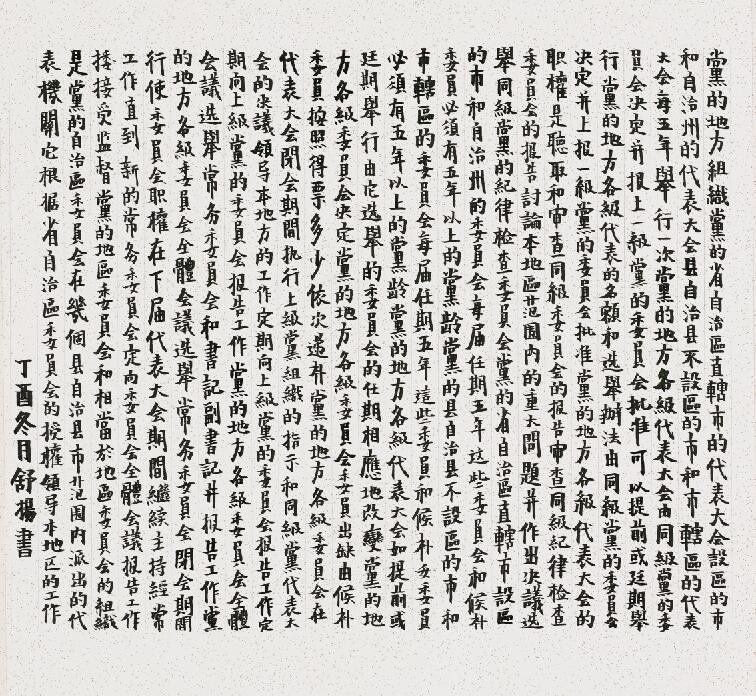 黨的地方組織黨的省自治區直轄市的代表大会設區的市
和自治州的代表大会县自治县不設區的市和市轄區的代表
大会每五年舉行一次黨的地方各級代表大会由同級黨的委
員会决定并报上一級黨的委員会批准可以提前或延期舉
行黨的地方各級代表的名額和选舉辦法由同級黨的委員会
决定并上报一級黨的委員会批准黨的地方各級代表大会的
职權是聽取和审查同級委員会的报告审查同級紀律检查
委員会的报告討論本地區范围内的重大問題并作出决議选
舉同級黨的委員会黨的紀律檢查委員会黨的省自治區直轄市設區
的市和自治州的委員会每届任期五年这些委員会和候补
委員必須有五年以上的黨龄黨的县自治县不設區的市和
市轄區的委員会每届任期五年這些委員和候补委委員
必須有五年以上的黨龄黨的地方各級代表大会如提前或
延期舉行由它选舉的委員会的任期相應地改變黨的地
方各級委員会决定黨的地方各級委員会委員出缺由候补
委員按照得票多少依次遞补黨的地方各級委員会在
代表大会閉会期間执行上級黨組織的指示和同級黨代表大
会的决議領导本地方的工作定期向上級黨的委員会报告工作定
期向上級黨的委員会报告工作黨的地方各級委員会全體
会議选舉常务委員会和書記副書記并报告工作黨
的地方各級委員会全體会議选舉常务委員会閉会期間
行使委員会职權在下届代表大会期間繼续主持經常
工作直到新的常务委員会定向委員会全體会議报告工作
接接受监督黨的地區委員会和相當於地區委員会的組織
是黨的自治區委員会在幾個县自治县市范围内派出的代
表機關它根据省自治區委員会的授權領导本地区的工作
丁酉冬月舒楊書